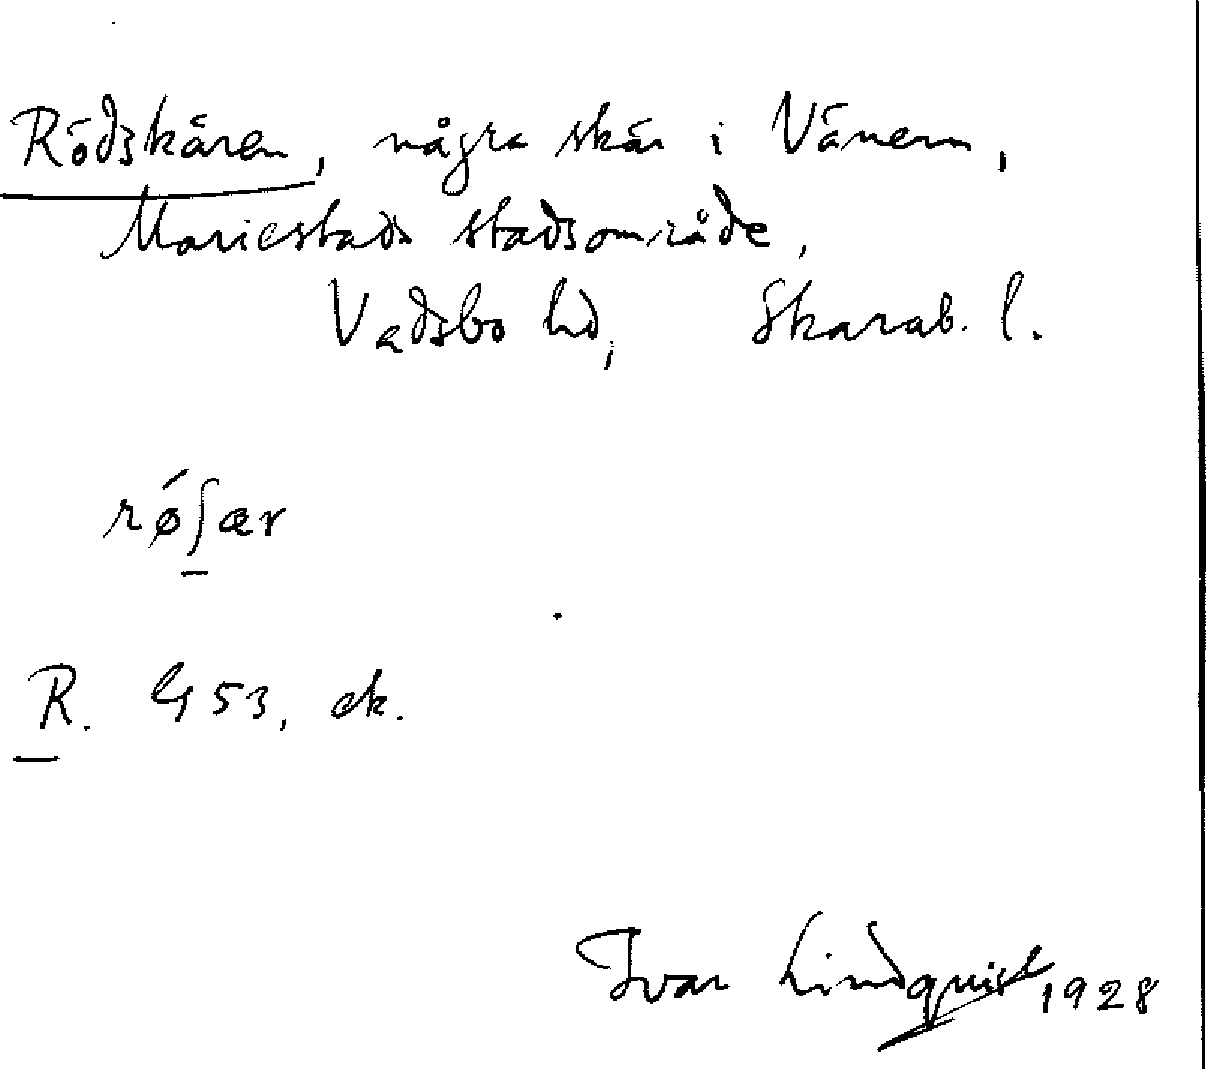 Rödskären, några skär i Vänern,
Mariestads stadsområde,
Vadsbo hd, Skarab. l.
rǿʃær
R. G 53, ek.
Ivar Lindquist 1928